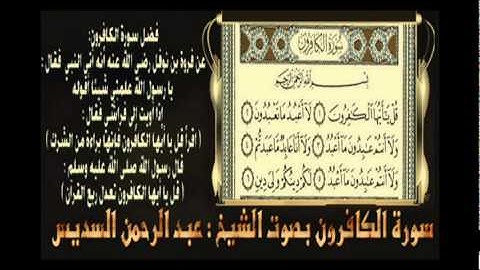 فضل سورة الكافرون:
عن فروة بن نوفل رضي الله عنه أنه أتى النبي فقال :
يا رسول الله علمني شيئا أقوله
إذا أويت إلى فراشي فقال :
( اقرأ قل يا أيها الكافرون فإنها براءة من الشرك )
قال رسول الله صلى الله عليه وسلم :
( قل يا أيها الكافرون تعدل ربع القرآن )
سورة الكافرون
بسم الله الرحمن الرحيم
قل يأيها الكفرون ١ لا أعبد ما تعبدون ٢
ولا أنتم عبدون ما أعبد ٣ ولا أنا عابد ما عبدتم ٤
ولا أنتم عبدون ما أعبد ٥ لكم دينكم ولي دين ٦
سورة الكافرون بصوت الشيخ : عبد الرحمن السديس